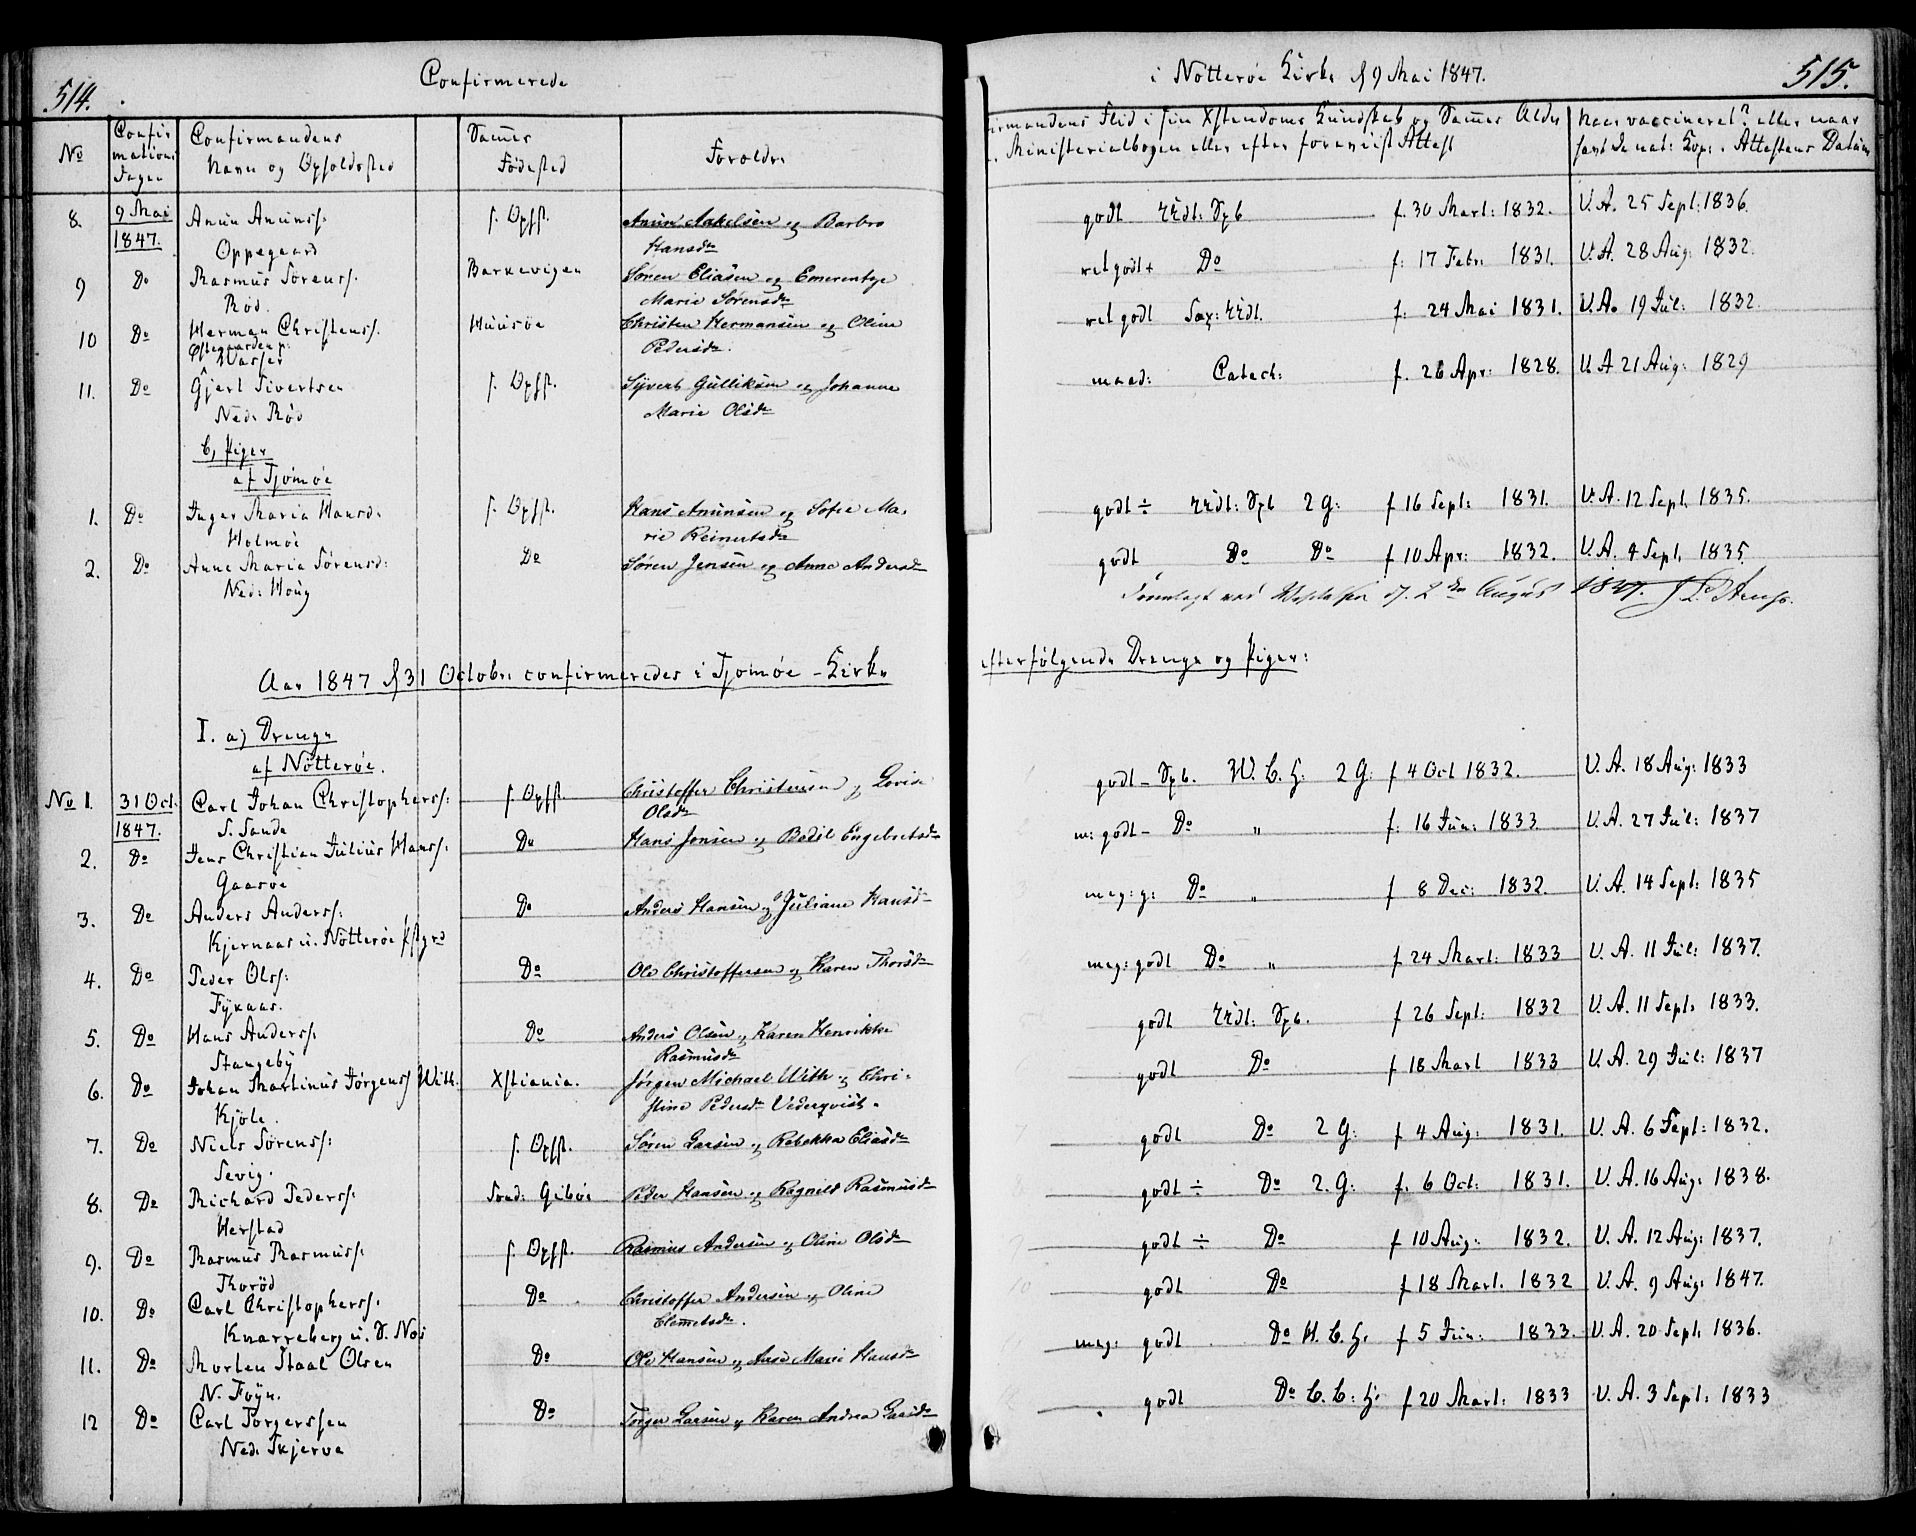 514.
Confirmerede
No
Confir
mations
Dagen
Confirmandens
Navn og Opholdsted
Sammes
Fødested
Forældre
8.
9 Mai
1847.
Anun Anunss.
Oppegaard
s. Opsst.
Anun Aakelsen og Barbro
Hansdr
9
Do
Rasmus Sørenss.
Rød.
Barkevigen
Søren Eliasen og Emerentze
Marie Sørensdr
10
Do
Herman Christenss.
Østegaarden p.
Vasser
Huusøe
Christen Hermansen og Oline
Pedersdr.
11.
Do
Gjert Sivertsen
Ned: Rød
s. Opsst.
Syvert Gulliksen og Johanne
Marie Olsdr
b, Piger
af Tjømøe
1.
Do
Inger Maria Hansd:
Holmøe
s. Opsst.
Hans Anunsen og Sofie Ma-
rie Reinertsdr
2.
Do
Anne Maria Sørensd:
Ned: Houg
Do
Søren Jensen og Anne Andersdr
Aar 1847 d 31 Octobr: confirmeredes i Tjømøe-Kirke
I. a) Drenge
af Nøtterøe.
No 1.
31 Oct:
1847.
Carl Johan Christopherss:
S. Sande
s. Opsst.
Christoffer Christensen og Lovise
Olsdr
2.
Do
Jens Christian Julius Hanss:
Gaasøe
Do
Hans Jensen og Bodil Engebretsdr
3.
Do
Anders Anderss:
Kjernaas u. Nøtterøe Pstgrd
Do
Anders Hansen og Juliane Hansdr
4.
Do
Peder Olss:
Fynaas.
Do
Ole Christoffersen og Karen Thorsdr
5.
Do
Hans Anderss:
Stangeby
Do
Anders Olsen og Karen Henrikke
Rasmusdr
6.
Do
Johan Martinus Jørgenss With.
Kjøle.
Xstiania.
Jørgen Michael With og Chri-
stine Pedersdr Vederqvist.
7.
Do
Niels Sørenss:
Sevig.
s. Opsst.
Søren Larsen og Rebekka Eliasdr
8.
Do
Richard Pederss:
Herstad
Sønd: Gibøe
Peder Hansen og Ragnild Rasmusdr
9.
Do
Rasmus Rasmuss:
Thorød
s. Opsst.
Rasmus Andersen og Oline Olsdr
10.
Do
Carl Christopherss:
Knarreberg u. S. Nøs
Do
Christoffer Andersen og Oline
Clemetsdr.
11.
Do
Morten Staal Olsen
N. Føyn.
Do
Ole Hansen og Anne Marie Hansdr
12
Do
Carl Torgerssen
Ned: Skjerve
Do
Torger Larsen og Karen Andrea Larsdr
i Nøtterøe Kirke d 9 Mai 1847.
515.
irmandens Flid i sin Xstendoms Kundskab og Sammes Alder
Ministerialbogen eller efter foreviist Attest
Naar vaccineret? eller naar
havt de nat: Kop: Attestens Datum
godt Ridl: Spb f. 30 Mart: 1832. V. A. 25 Sept: 1836.
ret godt+ Do f: 17 Febr: 1831. V. A. 28 Aug: 1832.
ret godt Sax: Ridl. f: 24 Mai 1831. V. A. 19 Jul: 1832
maad: Catech: f. 26 Apr: 1828. V. A 21 Aug: 1829
godt ÷ Ridl: Spb 2 G: f 16 Sept: 1831. V. A. 12 Sept. 1835.
godt Do Do f 10 Apr: 1832. V. A. 4 Sept. 1835.
d. 2den August 1847.
efterfølgende Drenge og Piger:
godt – Spb. W. B. H: 2 G: f 4 Oct 1832. V. A. 18 Aug: 1833
m: godt – Do " f: 16 Jun: 1833. V. A. 27 Jul: 1837
meg: g: Do " f 8 Dec: 1832. V. A. 14 Sept: 1835
meg: godt Do " f 24 Mart: 1833 V. A. 11 Jul: 1837.
godt Ridl: Spb. f 26 Sept: 1832 V. A. 11 Sept. 1833.
godt Do f 18 Mart 1833 V. A. 29 Jul: 1837
godt Do 2 G: f 4 Aug: 1831. V. A. 6 Sept: 1832.
godt ÷ Do 2. G: f. 6 Oct: 1831. V. A. 16 Aug: 1838.
godt ÷ Do f 10 Aug: 1832. V. A. 12 Aug: 1837.
godt Do f 18 Mart. 1832 V. A. 9 Aug: 1847.
meg: godt Do H. B. H. f 5 Jun: 1833. V. A. 20 Sept. 1836.
godt Do B. B: H: f 20 Mart: 1833 V. A. 3 Sept: 1833